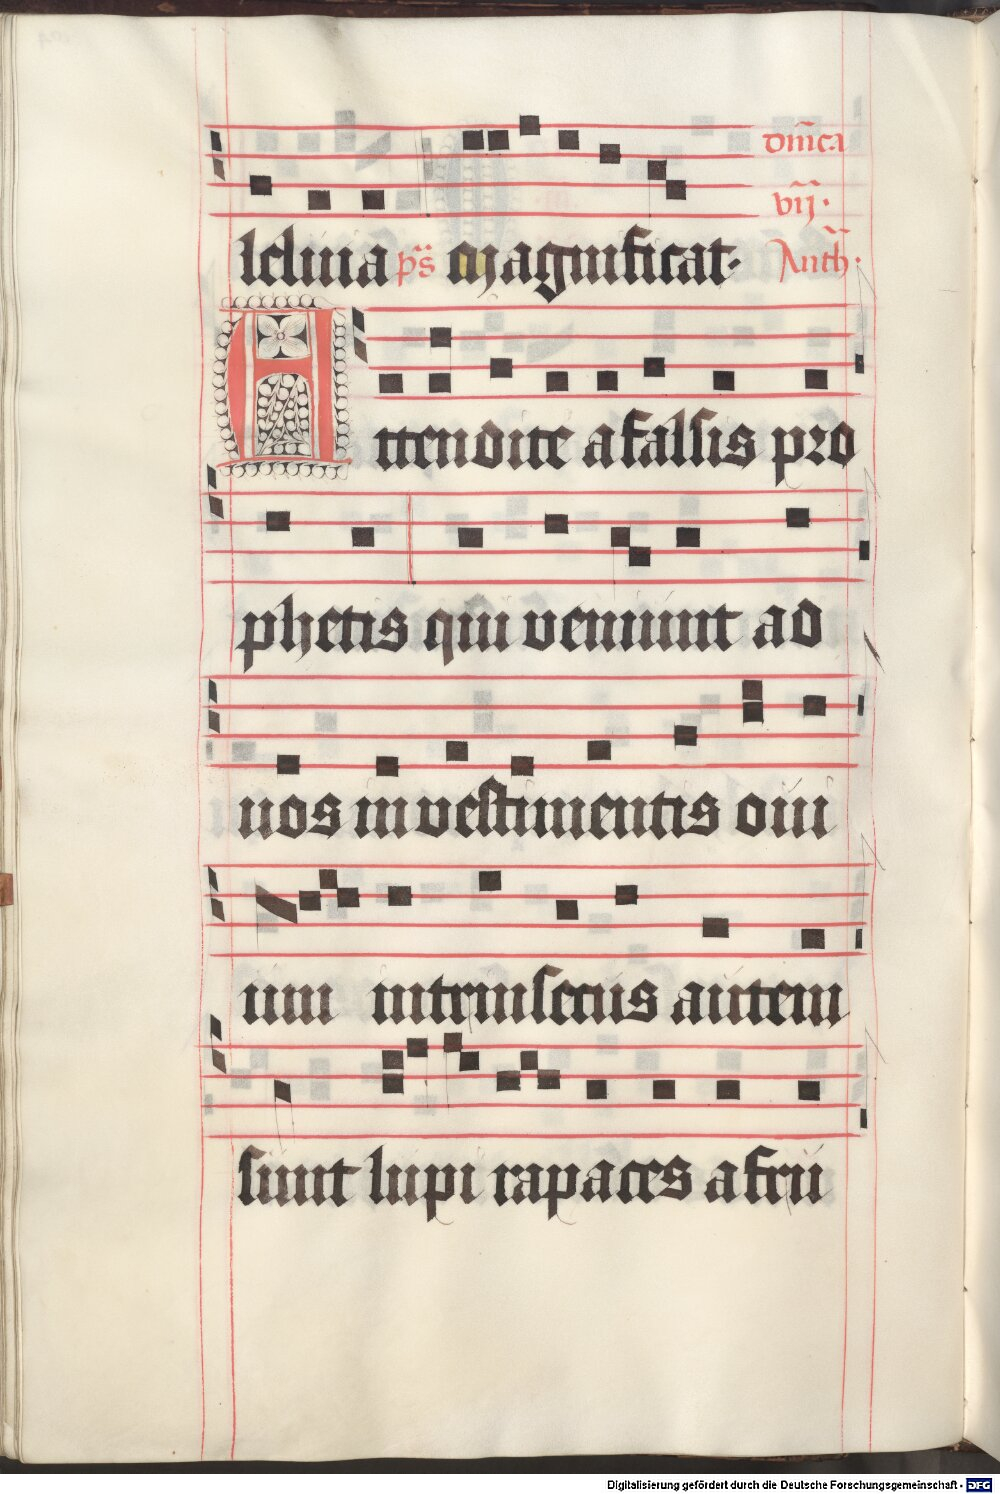 dnīca
vij·
leluia ps̄ Magnificat· Anth̄·
Attendite a falsis pro
phetis qui veniunt ad
uos in vestimentis oui
um intrinsecus autem
sunt lupi rapaces a fru
Digitalisierung gefördert durch die Deutsche Forschungsgemeinschaft - DFG